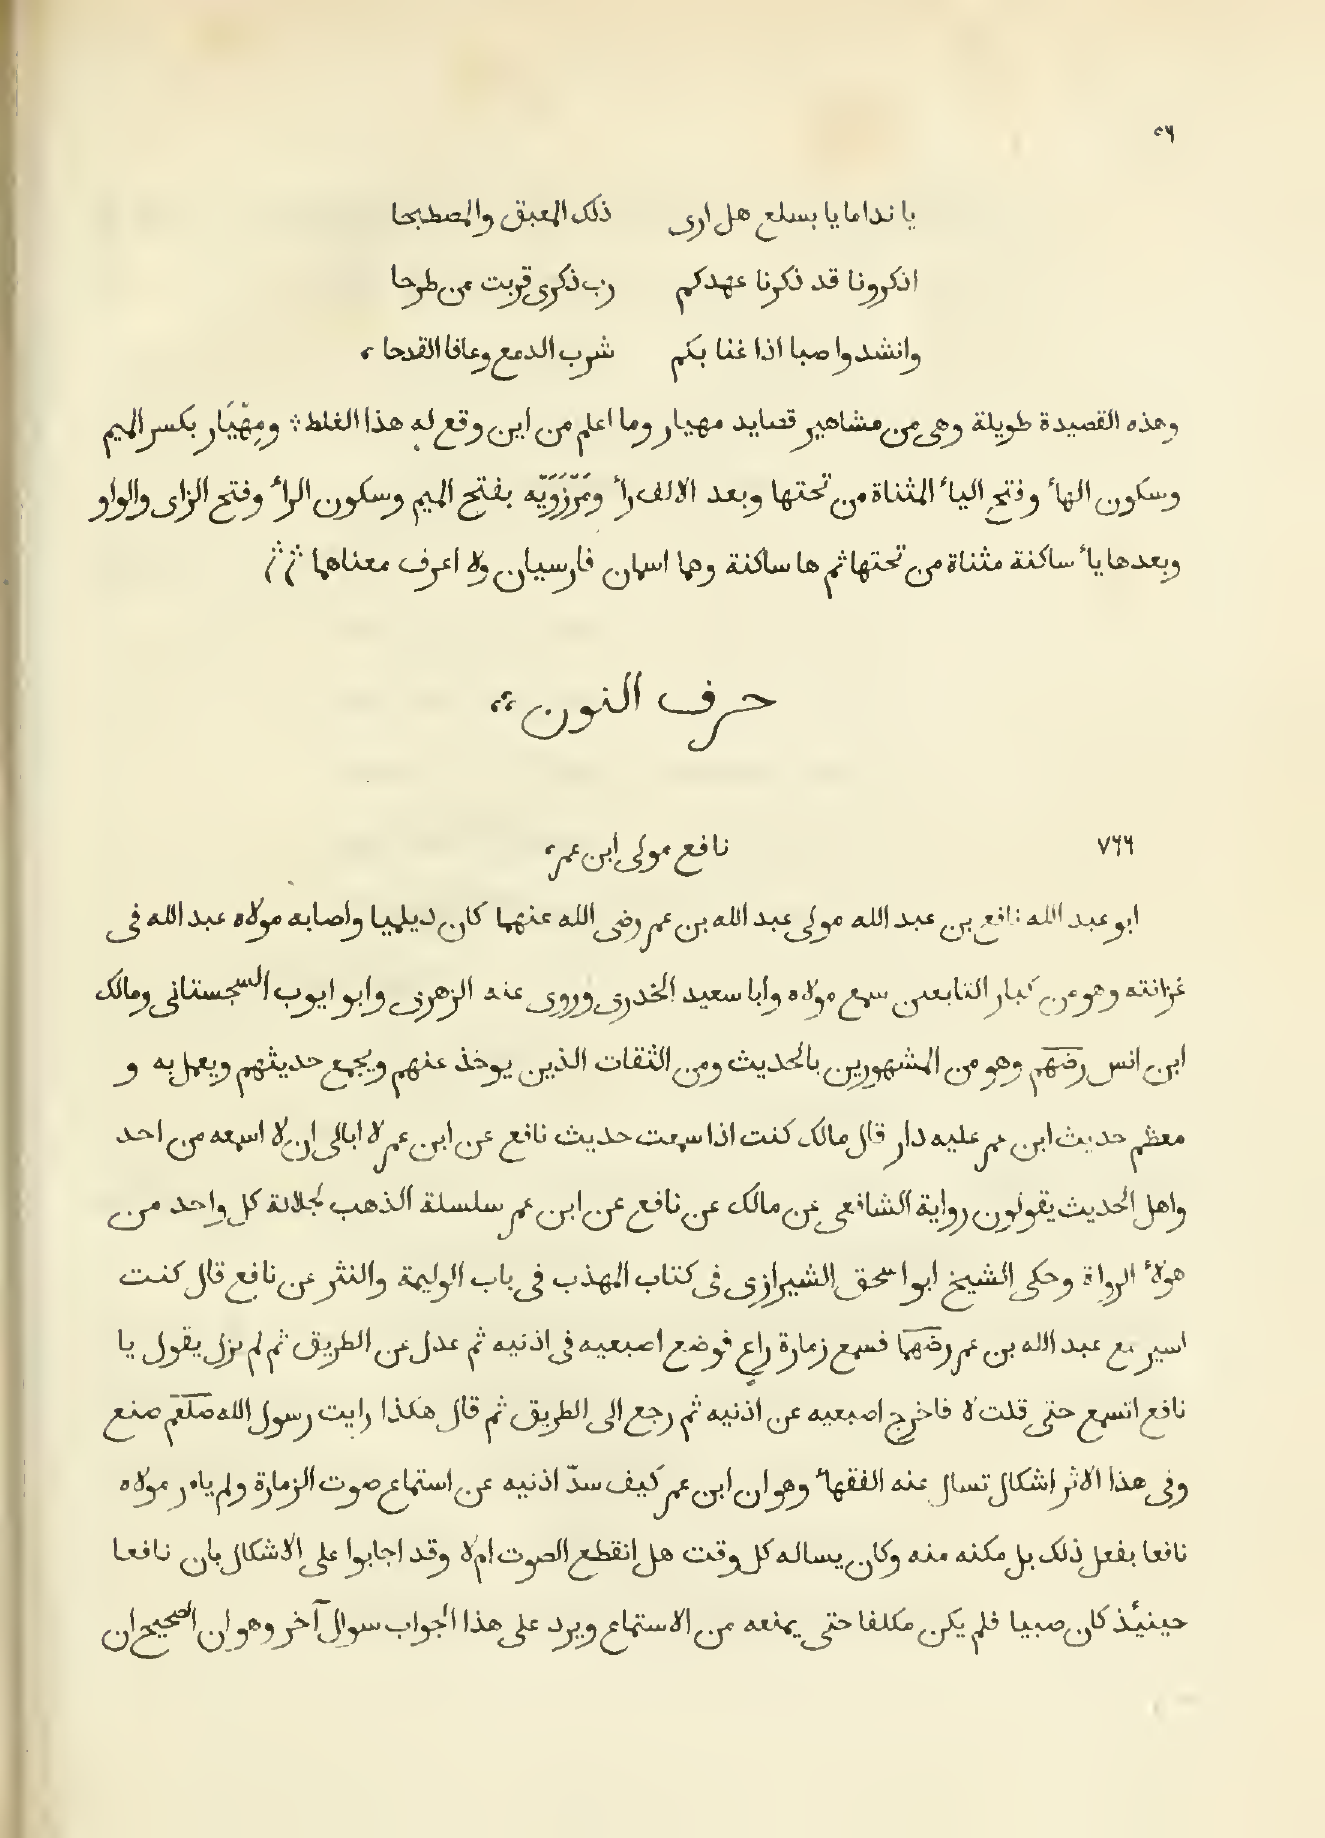 ٥٦
يا نداماىا بسلع هل ارى ذلك المغبق والمصطبحا
اذكرونا قد ذكرنا عهدكم رب ذكرى قربت من طرحا
وانشدوا صبا اذا غنا بكم شرب الدمع وعافا القدحا
وهذه القصيدة طويلة وهى من مشاهير قصايد مهيار وما اعلم من اين وقع له هذا الغلط ومِهْيَار بكسر الميم
وسكون الهاء وفتح الياء المثناة من تحتها وبعد الالف راء ومَرْزَوَيْه بفتح الميم وسكون الراء وفتح الزاى والواو
وبعدها ياء ساكنة مثناة من تحتها ثم ها ساكنة وهما اسمان فارسيان ولا اعرف معناهما
حرف النون
٧٦٦ نافع مولى ابن عمر
ابو عبد الله نافع بن عبد الله مولى عبد الله بن عمر رضى الله عنهما كان ديلميا واصابه مولاه عبد الله فى
غزاته وهو من كبار التابعين سمع مولاه وابا سعيد الخدرى وروى عنه الزهرى وابو ايوب السجستانى ومالك
ابن انس رضهم وهو من المشهورين بالحديث ومن الثقات الذين يوخذ عنهم ويجمع حديثهم ويعمل به و
معظم حديث ابن عمر عليه دار قال مالك كنت اذا سمعت حديث نافع عن ابن عمر لا ابالى ان لا اسمعه من احد
واهل الحديث يقولون رواية الشافعى عن مالك عن نافع عن ابن عمر سلسلة الذهب لجلالة كل واحد من
هولاء الرواة وحكى الشيخ ابو اسحق الشيرازى فى كتاب المهذب فى باب الوليمة والنثر عن نافع قال كنت
اسير مع عبد الله بن عمر رضهما فسمع زمارة راع فوضع اصبعيه فى اذنيه ثم عدل عن الطريق ثم لم يزل يقول يا
نافع اتسمع حتى قلت لا فاخرج اصبعيه عن اذنيه ثم رجع الى الطريق ثم قال هكذا رايت رسول الله صلعم صنع
وفى هذا الاثر اشكال تسال عنه الفقهاء وهو ان ابن عمر كيف سدّ اذنيه عن استماع صوت الزمارة ولم يامر مولاه
نافعا بفعل ذلك بل مكنه منه وكان يساله كل وقت هل انقطع الصوت ام لا وقد اجابوا على الاشكال بان نافعا
حينئذ كان صبيا فلم يكن مكلفا حتى يمنعه من الاستماع ويرد على هذا الجواب سوال آخر وهو ان الصحيح ان